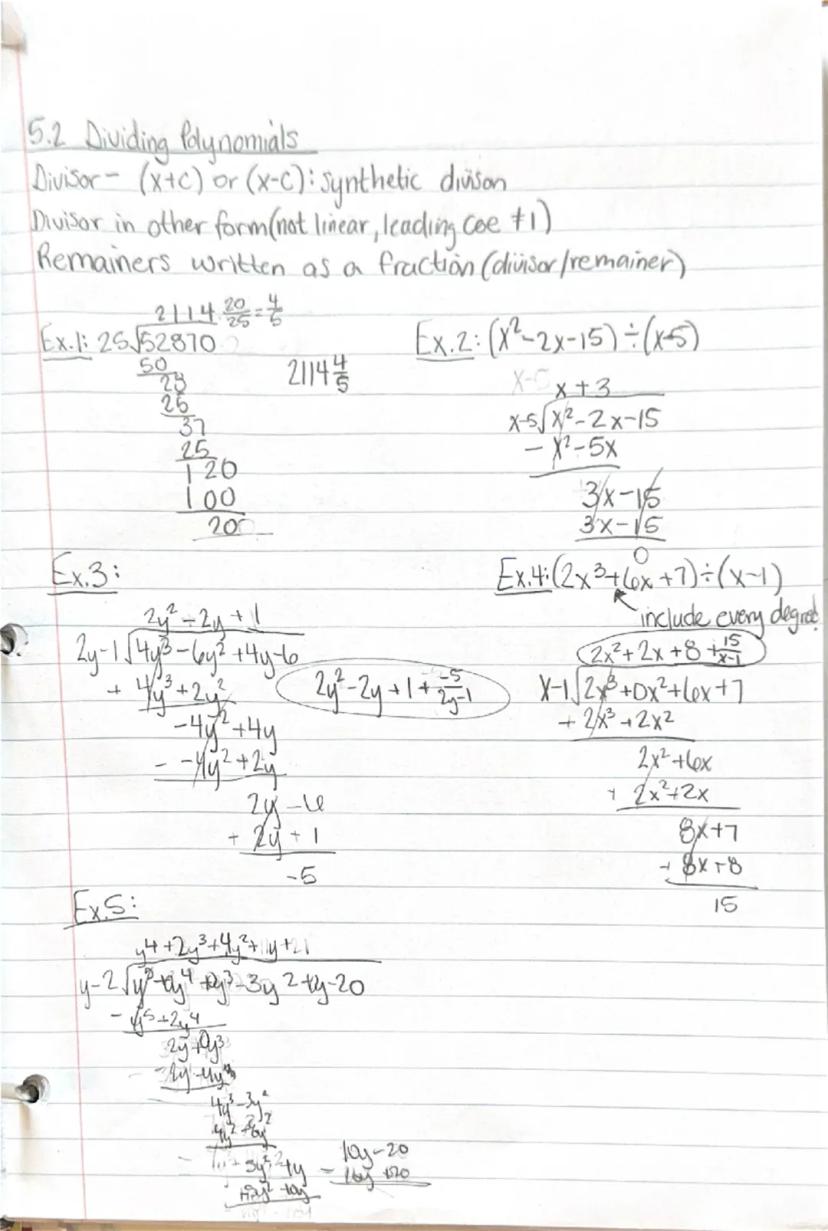 5.2 Dividing Polynomials
Divisor - (x+c) or (x-c): synthetic divison
Divisor in other form (not linear, leading coe ≠1)
Remainers written as a fraction (divisor/remainer)
Ex.1:
2114 20/25 = 4/5
25√52870
50
28
25
37
25
120
100
20
2114 4/5
Ex.2: (x²-2x-15) ÷ (x-5)
x+3
x-5√x²-2x-15
- x²-5x
3x-15
3x-15
0
Ex.3:
2y²-2y+1
2y-1√4y³-6y²+4y-6
+ 4y³+2y²
-4y²+4y
- -4y²+2y
2y-6
+ 2y+1
-5
2y²-2y+1+ -5/2y-1
Ex.4: (2x³+6x+7) ÷ (x-1)
include every degree
2x²+2x+8+15/x-1
x-1√2x³+0x²+6x+7
+ 2x³+2x²
2x²+6x
+ 2x²+2x
8x+7
+ 8x+8
15
Ex.5:
y-2
- y⁵+2y⁴
4y³-3y²
10y-20